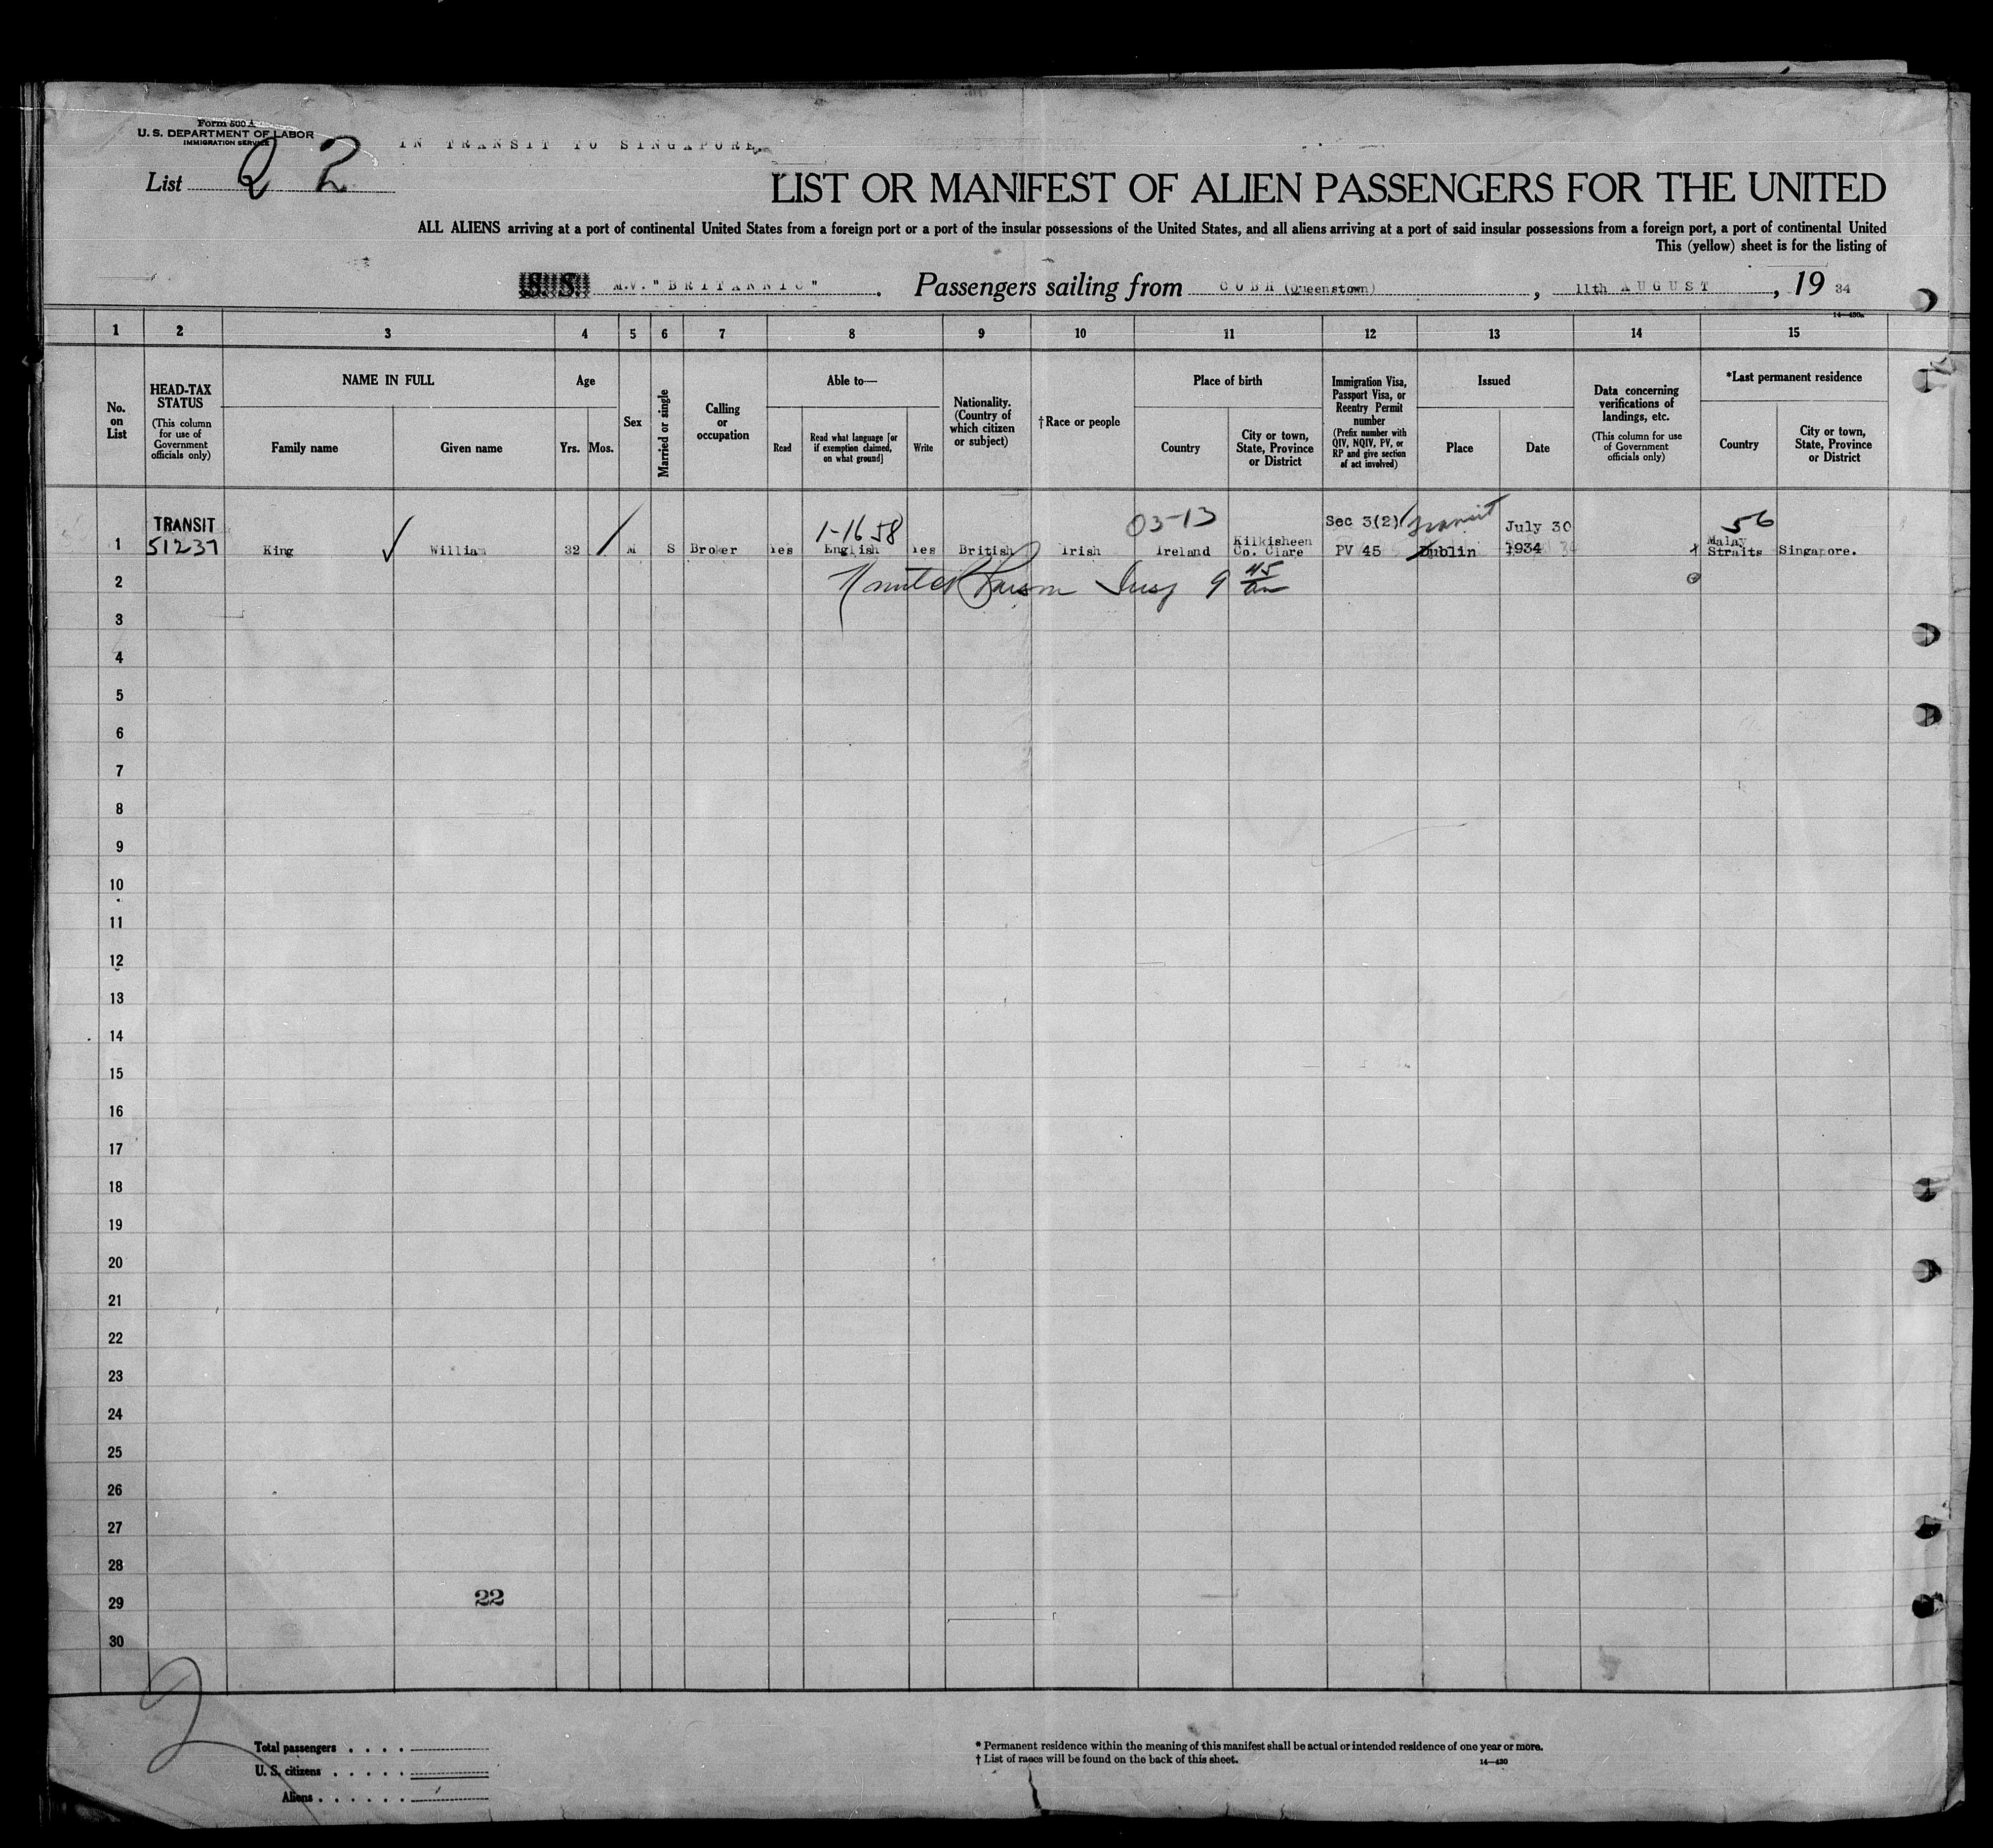 Form 500 A
U. S. DEPARTMENT OF LABOR
IMMIGRATION SERVICE
IN TRANSIT TO SINGAPORE.
List 22
LIST OR MANIFEST OF ALIEN PASSENGERS FOR THE UNITED
ALL ALIENS arriving at a port of continental United States from a foreign port or a port of the insular possessions of the United States, and all aliens arriving at a port of said insular possessions from a foreign port, a port of continental United
This (yellow) sheet is for the listing of
S. S. M.V. "BRITANNIC" . Passengers sailing from COBH (Queenstown) , 11th AUGUST , 19 34
14—430a
1 2 3 4 5 6 7 8 9 10 11 12 13 14 15
No. on List
HEAD-TAX STATUS
(This column for use of Government officials only)
NAME IN FULL
Family name
Given name
Age
Yrs.
Mos.
Sex
Married or single
Calling or occupation
Able to—
Read
Read what language [or if exemption claimed, on what ground]
Write
Nationality. (Country of which citizen or subject)
†Race or people
Place of birth
Country
City or town, State, Province or District
Immigration Visa, Passport Visa, or Reentry Permit number
(Prefix number with QIV, NQIV, PV, or RP and give section of act involved)
Issued
Place
Date
Data concerning verifications of landings, etc.
(This column for use of Government officials only)
*Last permanent residence
Country
City or town, State, Province or District
TRANSIT 1-16 58 03-13 Sec 3(2) Transit July 30 56
1 51237 King ✓ William 32 M S Broker Yes English Yes British Irish Ireland Kilkisheen Co. Clare PV 45 Dublin 1934 x Malay Straits Singapore.
2 Insp 9 45
3
4
5
6
7
8
9
10
11
12
13
14
15
16
17
18
19
20
21
22
23
24
25
26
27
28
29 22
30
2
Total passengers . . . .
U. S. citizens . . . . .
Aliens . . . . . .
* Permanent residence within the meaning of this manifest shall be actual or intended residence of one year or more.
† List of races will be found on the back of this sheet.
14—430